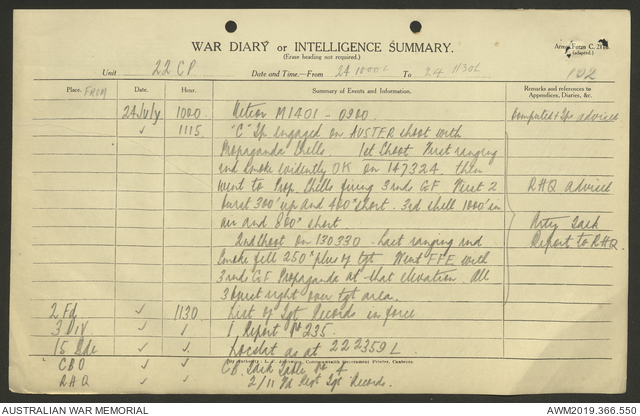 WAR DIARY or INTELLIGENCE SUMMARY.
(Erase heading not required.)
Army Form C. 2118.
(adapted.)
Unit 22 CP Date and Time—From 24 1000L To 24 1130L 102
Place. FROM Date. Hour. Summary of Events and Information. Remarks and references to Appendices, Diaries, &c.
24 July 1000 Meteor M1401 - 0900 Computers & Tps advised
✓ 1115 "C" Tp engaged on AUSTER shoot with
Propaganda Shells 1st Shoot First ranging
rnd smoke evidently OK on 147324, then
went to Prop. Shells firing 3 rnds GF First 2 RHQ advised
burst 300' up and 400ˣ short. 3rd shell 1000' in
air and 800ˣ short. Arty Task
2nd Shoot on 130330 - Last ranging rnd Report to RHQ.
smoke fell 250ˣ plus of tgt Went FFE with
3 rnds GF Propaganda at that elevation. All
3 burst right over tgt area.
2 Fd ✓ 1130 List of Tgt Records in force
3 DIV ✓ I Report No 235.
15 Bde ✓ Locstat as at 222359L
CBO ✓ CB Task Table No 4
RHQ ✓ 2/11 Fd Regt Tgt Records.
AUSTRALIAN WAR MEMORIAL AWM2019.366.550